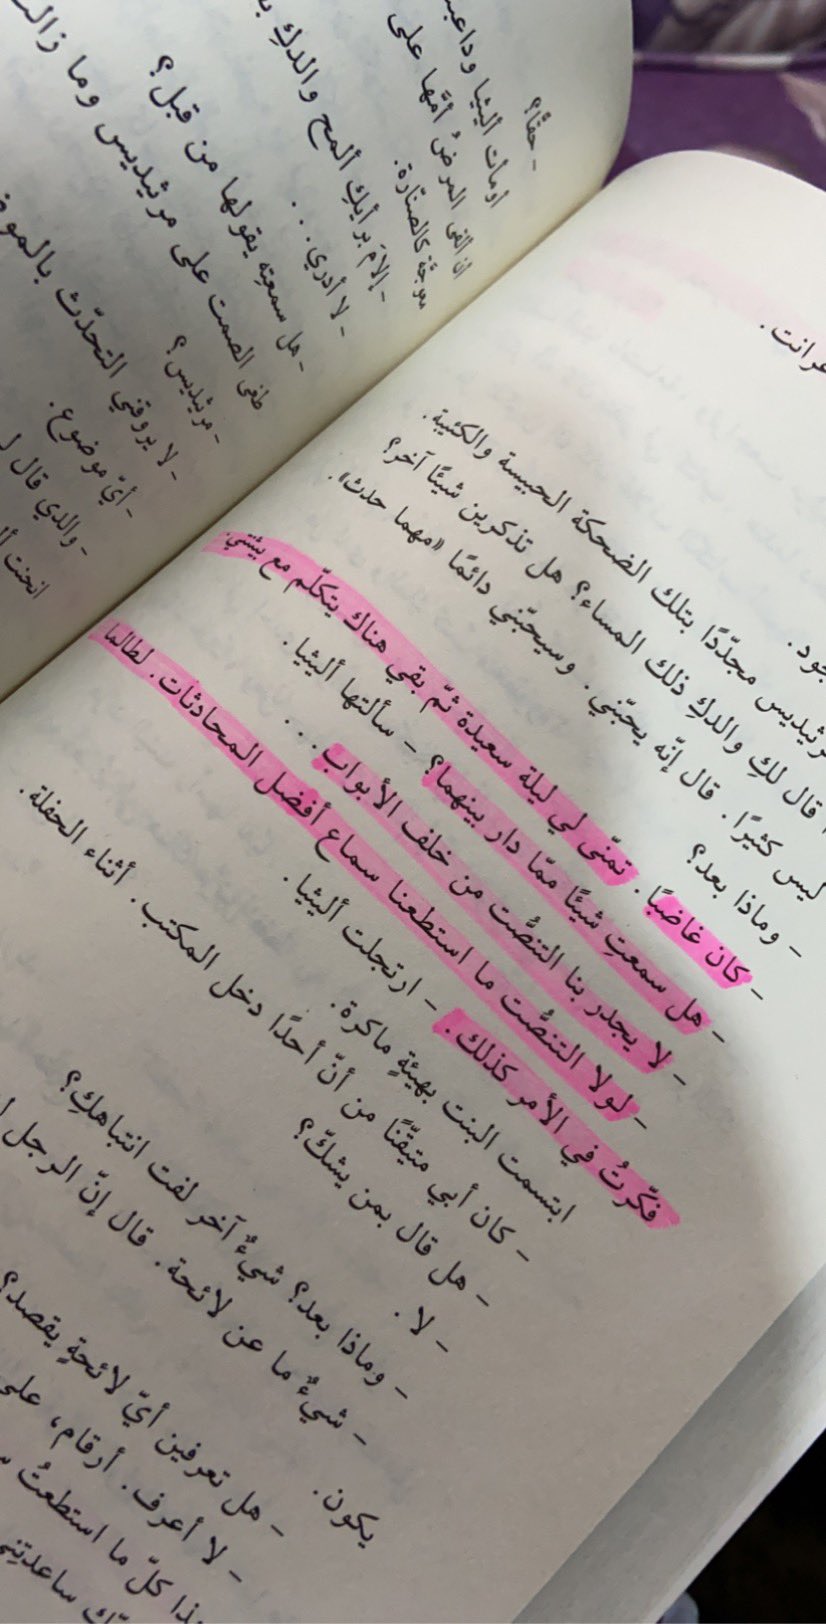 - حقًّا؟
أومأت أليثيا وداعبـ
أن ألقى المرضُ أمّها على
معوجّة كالصنّارة.
- إلامَ برأيكِ ألمح والدكِ بـ
- لا أدري...
- هل سمعتِه يقولها من قبل؟
طغى الصمت على مرثيديس وما زالت
- مرثيديس؟
- لا يروقني التحدّث بالموضـ
- أيّ موضوع.
- والدي قال لـ
انحنت ألـ
غرانت.
جود.
مرثيديس مجدّدًا بتلك الضحكة الحبيسة والكئيبة.
قال لكِ والدكِ ذلك المساء؟ هل تذكرين شيئًا آخر؟
ليس كثيرًا. قال إنّه يحبّني. وسيحبّني دائمًا «مهما حدث».
- وماذا بعد؟
- كان غاضبًا. تمنّى لي ليلة سعيدة ثمّ بقي هناك يتكلّم مع بيثيتي.
- هل سمعتِ شيئًا ممّا دار بينهما؟ – سألتها أليثيا.
- لا يجدر بنا التنصُّت من خلف الأبواب...
- لولا التنصُّت ما استطعنا سماع أفضل المحادثات. لطالما
فكّرتُ في الأمر كذلك. – ارتجلت أليثيا.
ابتسمت البنت بهيئةٍ ماكرة.
- كان أبي متيقّنًا من أنّ أحدًا دخل المكتب. أثناء الحفلة.
- هل قال بمن يشكّ؟
- لا.
- وماذا بعد؟ شيءٌ آخر لفت انتباهكِ؟
- شيءٌ ما عن لائحة. قال إنّ الرجل
يكون.
- هل تعرفين أيّ لائحةٍ يقصد؟
- لا أعرف. أرقام، على
هذا كلّ ما استطعتُ
ساعدتِني